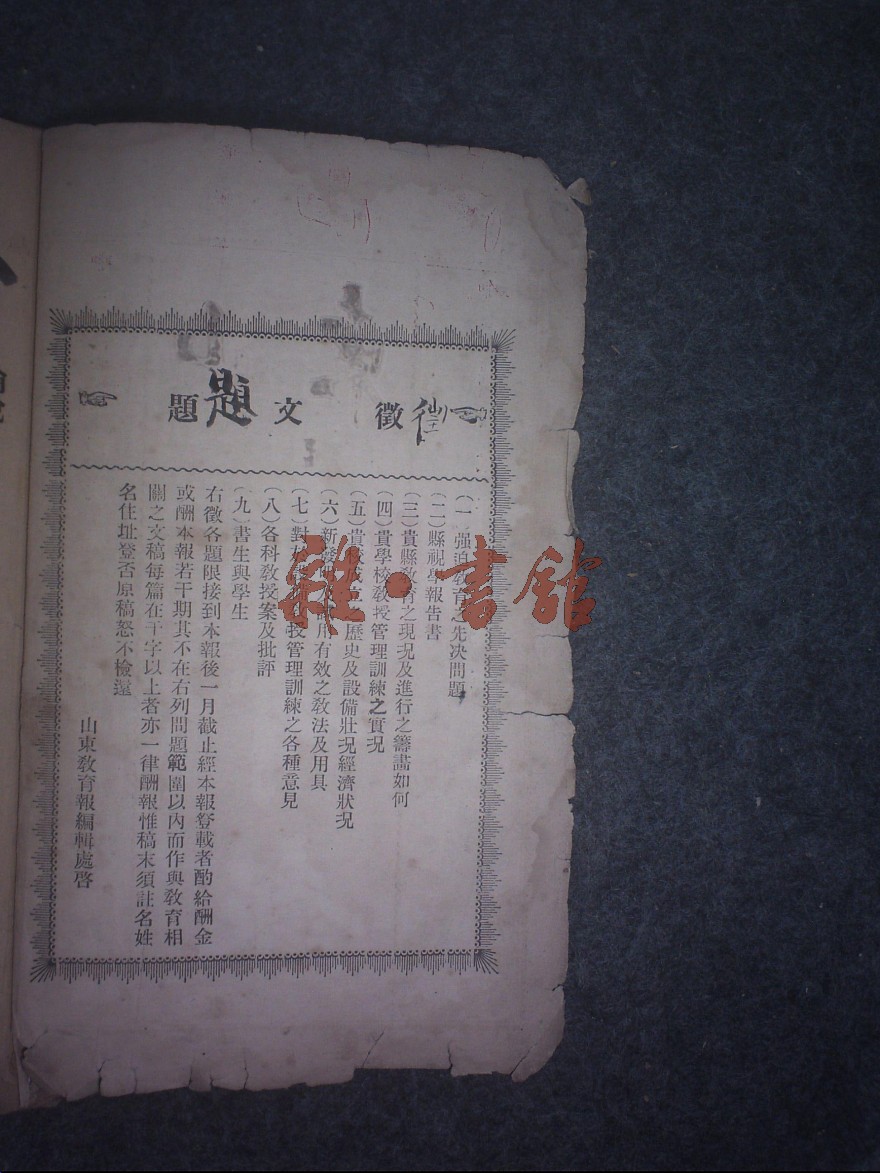 徵文題
題
(一)强迫教育之先决問題
(二)縣視學報告書
(三)貴縣教育之現况及進行之籌畵如何
(四)貴學校教授管理訓練之實况
(五)貴 立 歷史及設備壯况經濟狀况
(六)新 用有效之教法及用具
(七)對 授管理訓練之各種意見
(八)各科教授案及批評
(九)書生與學生
右徵各題限接到本報後一月截止經本報登載者酌給酬金
或酬本報若干期其不在右列問題範圍以內而作與教育相
關之文稿每篇在千字以上者亦一律酬報惟稿末須註名姓
名住址登否原稿恕不檢還
山東教育報編輯處啓
雜·書舘